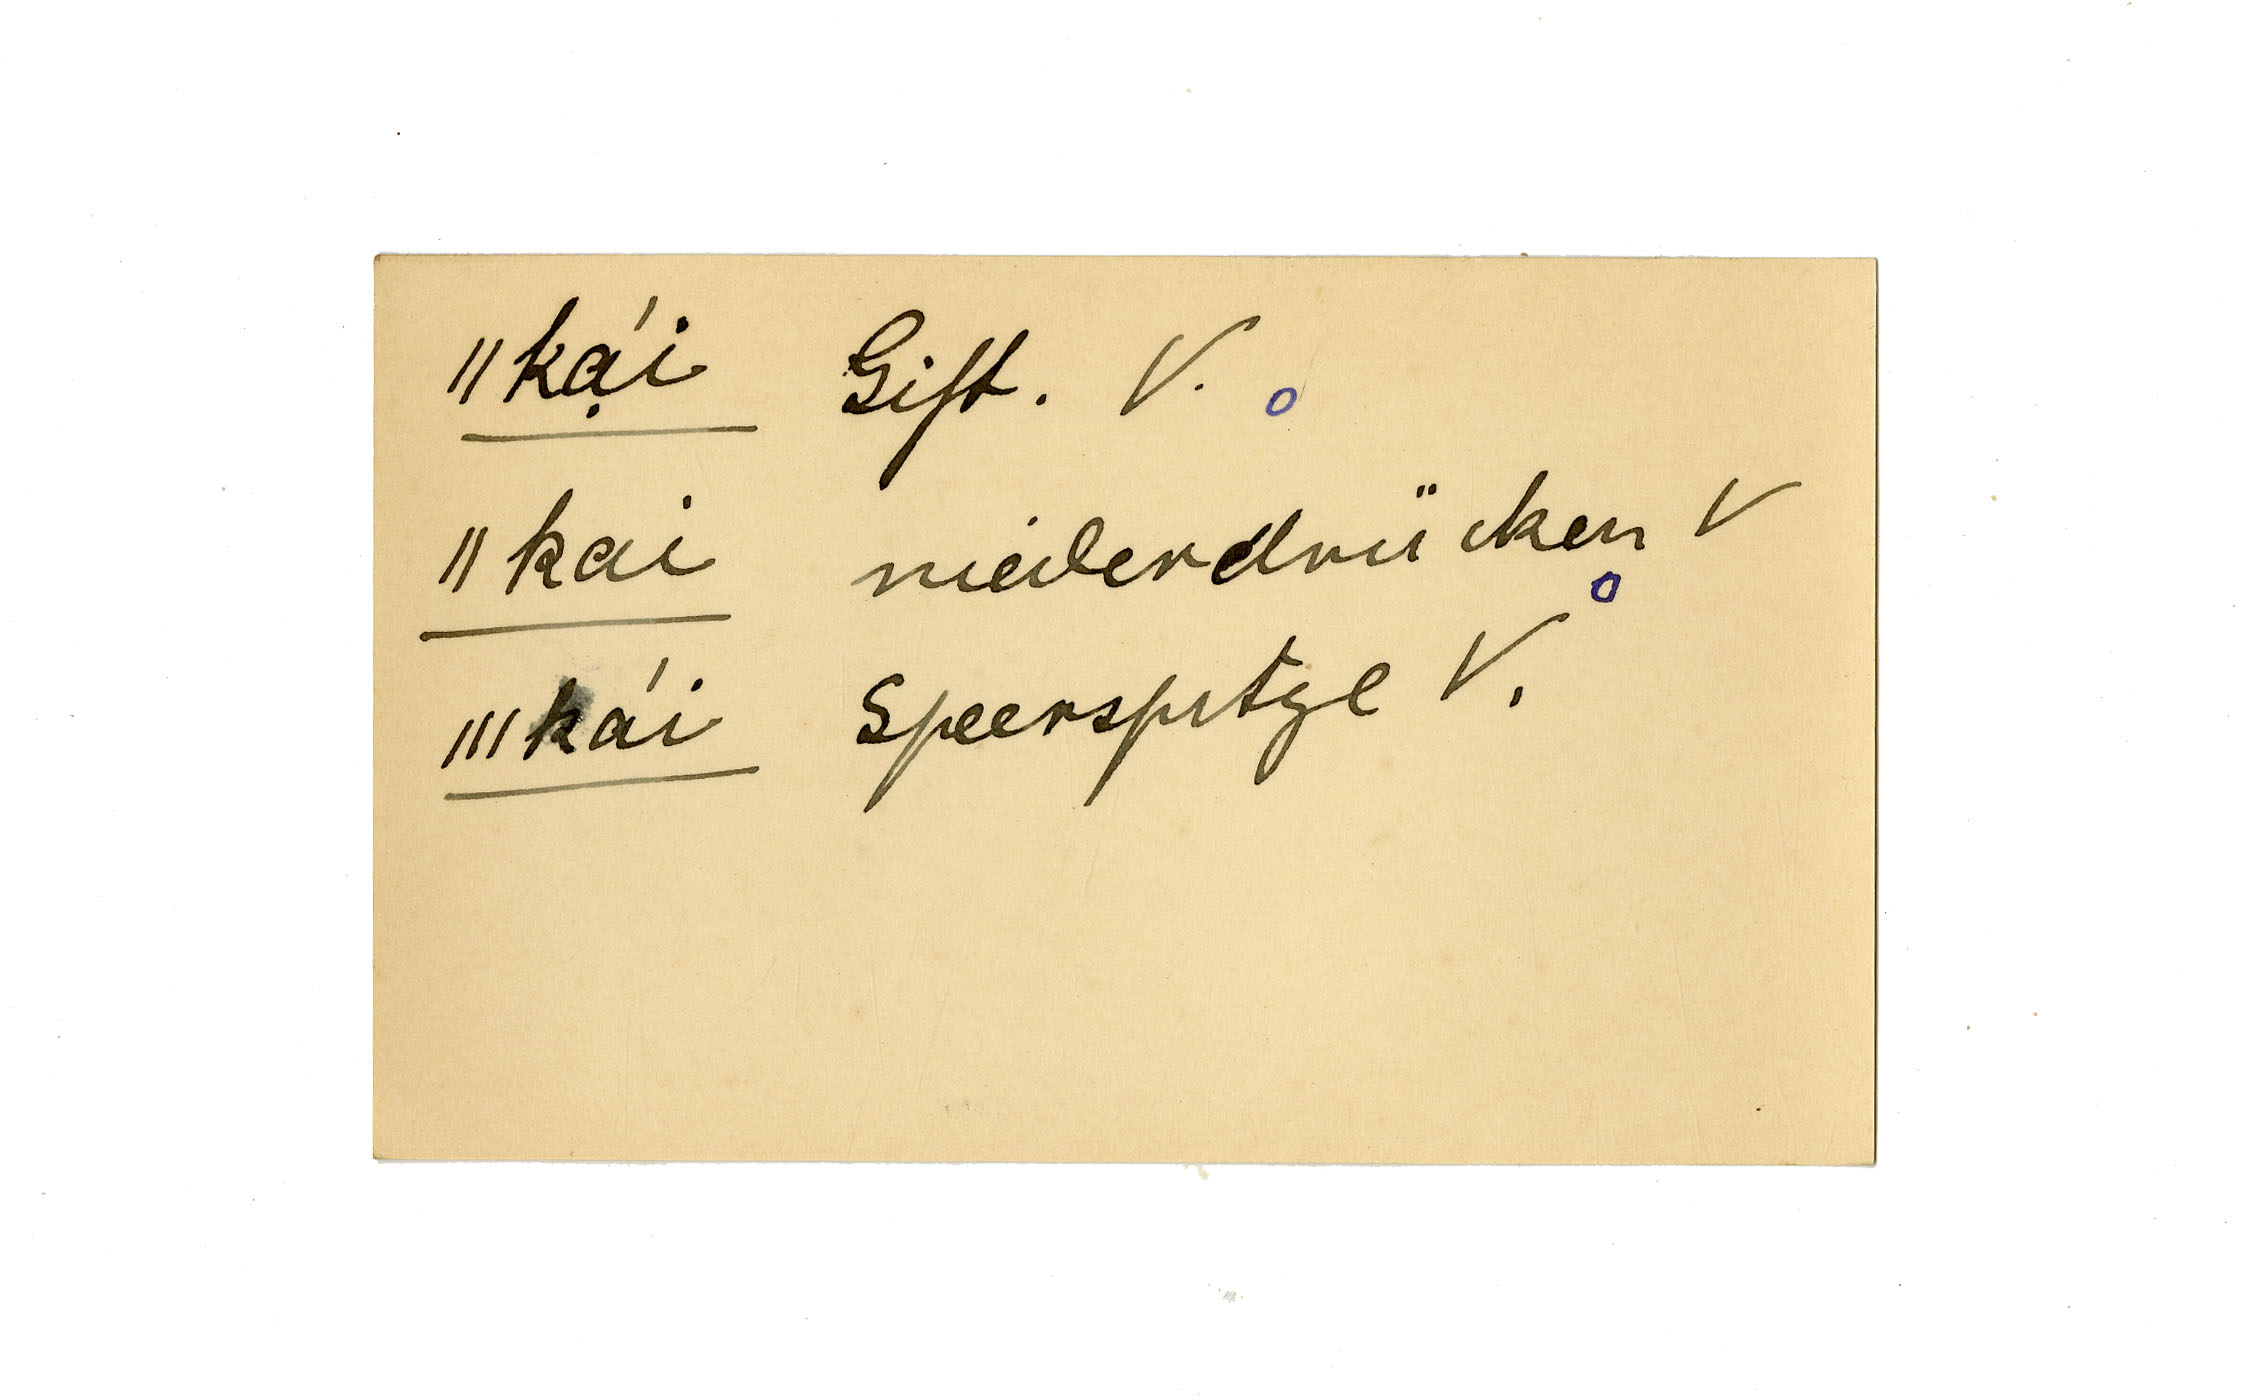 ||kạ́i Gift. V. o
||kai niederdrücken V o
|||kái Speerspitze V.